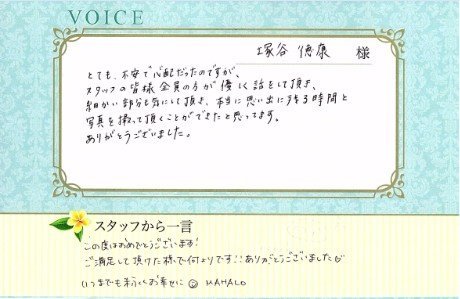 VOICE
塚谷 徳康 様
とても、不安で心配だったのですが、
スタッフの皆様全員の方が優しく話をして頂き、
細かい部分も気にして頂き、本当に思い出に残る時間と
写真を撮って頂くことができたと思ってます。
ありがとうございました。
スタッフから一言
この度はおめでとうございます!
ご満足して頂けた様で何よりです!!ありがとうございました
いつまでも末永くお幸せに MAHALO